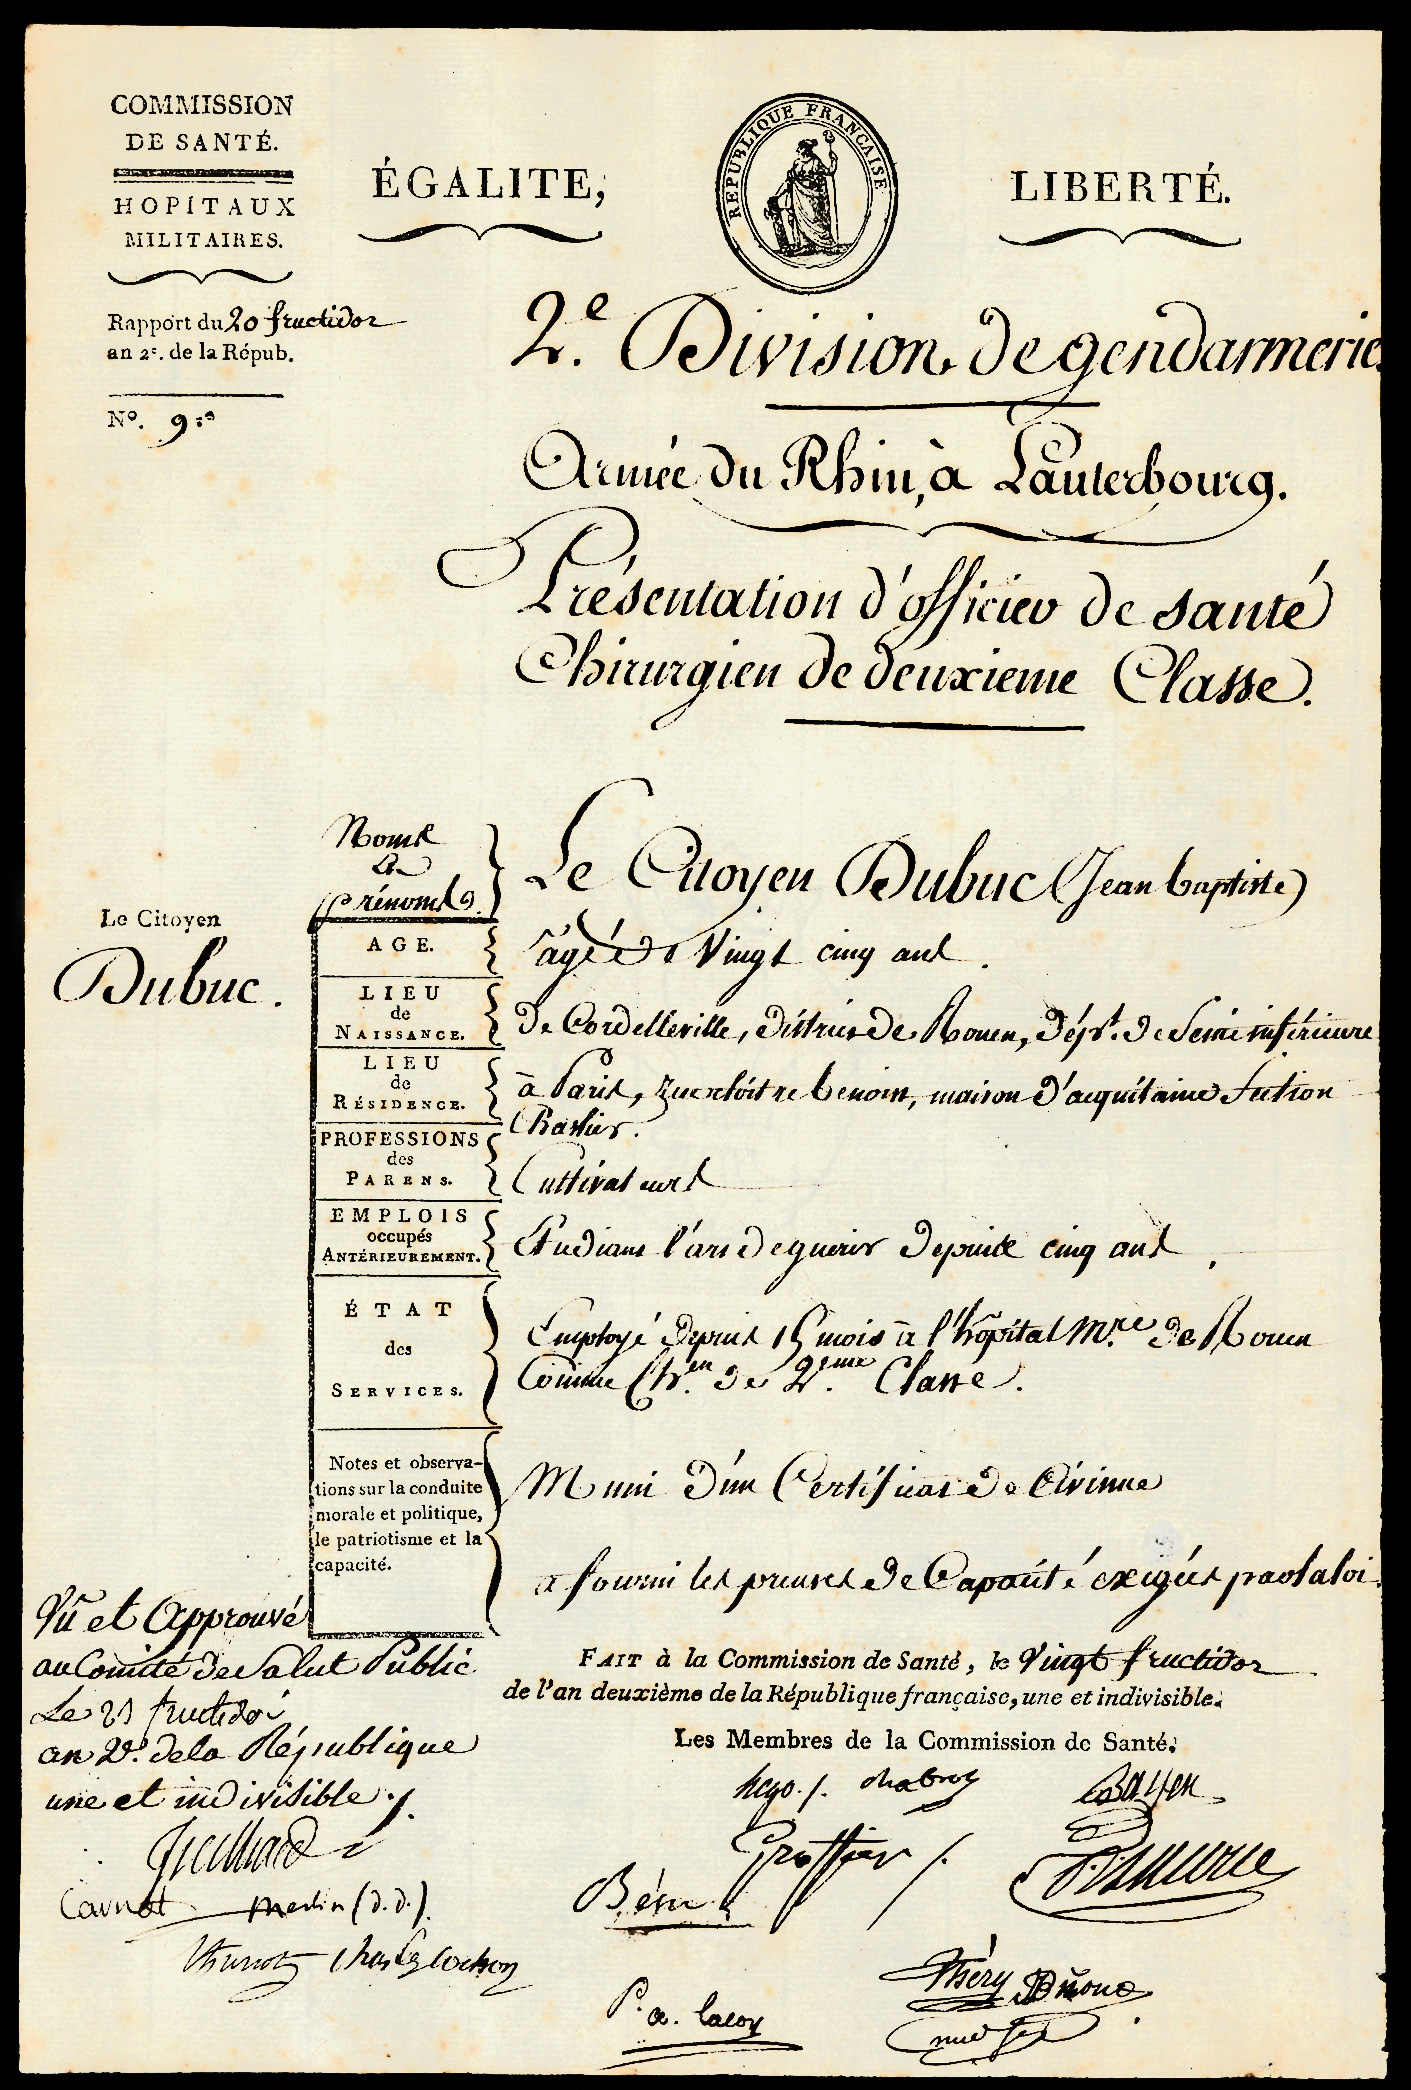 COMMISSION
DE SANTÉ.
HOPITAUX
MILITAIRES.
ÉGALITE,
RÉPUBLIQUE FRANÇAISE
LIBERTÉ.
Rapport du 20 fructidor
an 2e. de la Répub.
No. 9
2e. Division de gendarmerie
Armée du Rhin, à Lauterbourg.
Présentation d'officier de santé
Chirurgien de deuxieme Classe.
Le Citoyen
Dubuc.
Noms
&
prénoms
Le Citoyen Dubuc (Jean baptiste)
AGE.
âgé de Vingt cinq ans.
LIEU
de
NAISSANCE.
De Cordelleville, district de Rouen, dépt. de Seine inférieure
LIEU
de
RÉSIDENCE.
à Paris, rue cloitre benoist, maison d'acquitaine section
Chalier.
PROFESSIONS
des
PARENS.
Cultivateurs
EMPLOIS
occupés
ANTÉRIEUREMENT.
Etudiant l'art de guerir depuis cinq ans.
ÉTAT
des
SERVICES.
Employé depuis 15 mois à l'hôpital Mre. de Rouen
Comme Chen. de 2eme. Classe.
Notes et observa-
tions sur la conduite
morale et politique,
le patriotisme et la
capacité.
Muni d'un Certificat de Civisme
a fourni les preuves de Capacité exigées par la loi.
Vû et Approuvé
au Comité de Salut Public
Le 21 fructidor
an 2e. de la République
une et indivisible
Treilhard
Carnot Merlin (d. d.).
Thuriot Charles Cochon
FAIT à la Commission de Santé, le Vingt fructidor
de l'an deuxième de la République française, une et indivisible.
Les Membres de la Commission de Santé,
hego. chabrol Bayen
Groffier Pelletier
Théry
P. a. lacoy